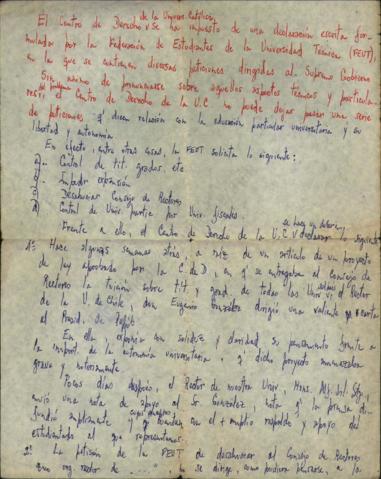 de la Univers. Católica,
El Centro de Derecho se ha impuesto de una declaración escrita for-
mulada por la Federación de Estudiantes de la Universidad Técnica (FEUT),
en la que se contienen diversas peticiones dirigidas al Supremo Gobierno
Sin ánimo de pronunciarse sobre aquellos aspectos técnicos y particula-
res el Centro de Derecho de la U.C. no puede dejar pasar una serie
de peticiones q' dicen relación con la educación particular universitaria y su
libertad y autonomía
En efecto, entre otras cosas, la FEUT solicita lo siguiente:
a).- Control de tít. grados, etc
b).- Impedir expansión
c) Desahuciar Consejo de Rectores
d) Control de Univ. partic. por Univ. fiscales.
se hace un deber
Frente a ello, el Centro de Derecho de la U.C. declarar lo siguiente
1º: Hace algunas semanas atrás, a raíz de un artículo de un proyecto
de ley aprobado por la C. de D, en q' se entregaba al Consejo de
Rectores la tuición sobre tít. y grad. de todas las Univ., el Rector
de la U. de Chile, don Eugenio González dirigió una valiente carta
al Presid. de
En ella exponía con solidez y claridad su pensamiento frente a
la import. de la autonomía universitaria, q' dicho proyecto amenazaba
grave y notoriamente
Pocos días después, el Rector de nuestra Univ., Mons. Alf. Sil. Stgo,
envió una nota de apoyo al Sr. González, nota q' la prensa di-
fundió ampliamente y q' cuenta con el + amplio respaldo y apoyo del
estudiantado al que representamos.
2º La petición de la FEUT de desahuciar al Consejo de Rectores
como org. rector de no se dirige, como pudiera pensarse, a la